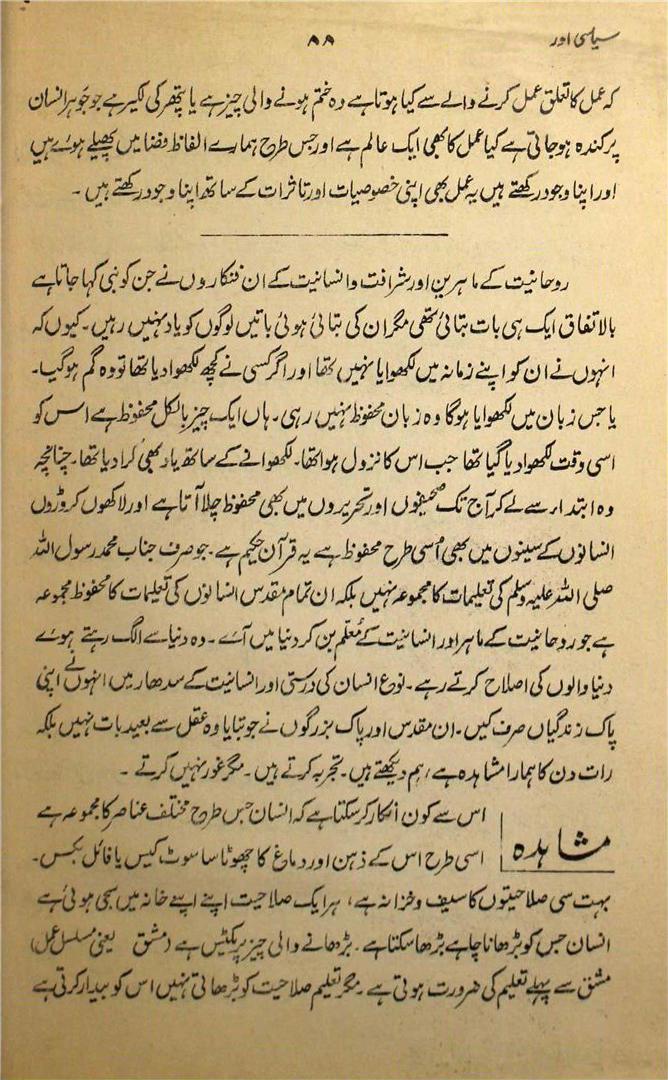 سیاسی اور
۸۸
کہ عمل کا تعلق عمل کرنے والے سے کیا ہوتا ہے وہ ختم ہونے والی چیز ہے یا پتھر کی لکیر ہے جو جَوہرِ انسان
پر کندہ ہو جاتی ہے کیا عمل کا بھی ایک عالم ہے اور جس طرح ہمارے الفاظ فضا میں پھیلے ہوئے ہیں
اور اپنا وجود رکھتے ہیں یہ عمل بھی اپنی خصوصیات اور تاثرات کے ساتھ اپنا وجود رکھتے ہیں ۔
روحانیت کے ماہرین اور شرافت و انسانیت کے ان فنکاروں نے جن کو نبی کہا جاتا ہے
بالاتفاق ایک ہی بات بتائی تھی مگر ان کی بتائی ہوئی باتیں لوگوں کو یاد نہیں رہیں ۔ کیوں کہ
انہوں نے ان کو اپنے زمانہ میں لکھوایا نہیں تھا اور اگر کسی نے کچھ لکھوا دیا تھا تو وہ گم ہوگیا۔
یا جس زبان میں لکھوایا ہوگا وہ زبان محفوظ نہیں رہی ۔ ہاں ایک چیز بالکل محفوظ ہے اس کو
اسی وقت لکھوا دیا گیا تھا جب اس کا نزول ہوا تھا۔ لکھوانے کے ساتھ یاد بھی کرا دیا تھا۔ چنانچہ
وہ ابتداء سے لے کر آج تک صحیفوں اور تحریروں میں بھی محفوظ چلا آتا ہے اور لاکھوں کروڑوں
انسانوں کے سینوں میں بھی اُسی طرح محفوظ ہے یہ قرآن حکیم ہے ۔ جو صرف جناب محمد رسول اللہ
صلی اللہ علیہ وسلم کی تعلیمات کا مجموعہ نہیں بلکہ ان تمام مقدس انسانوں کی تعلیمات کا محفوظ مجموعہ
ہے جو روحانیت کے ماہر اور انسانیت کے مُعلّم بن کر دنیا میں آئے ۔ وہ دنیا سے الگ رہتے ہوئے
دنیا والوں کی اصلاح کرتے رہے ۔ نوع انسان کی درستی اور انسانیت کے سدھار میں انہوں نے اپنی
پاک زندگیاں صرف کیں۔ ان مقدس اور پاک بزرگوں نے جو بتایا وہ عقل سے بعید بات نہیں بلکہ
رات دن کا ہمارا مشاہدہ ہے ، ہم دیکھتے ہیں ۔ تجربہ کرتے ہیں ۔ مگر غور نہیں کرتے ۔
مشاہدہ
اس سے کون انکار کرسکتا ہے کہ انسان جس طرح مختلف عناصر کا مجموعہ ہے
اسی طرح اس کے ذہن اور دماغ کا چھوٹا سا سوٹ کیس یا فائل بکس۔
بہت سی صلاحیتوں کا سیف و خزانہ ہے ، ہر ایک صلاحیت اپنے اپنے خانہ میں سجی ہوئی ہے
انسان جس کو بڑھانا چاہے بڑھا سکتا ہے ۔ بڑھانے والی چیز پریکٹیس ہے (مشق یعنی مسلسل عمل)
مشق سے پہلے تعلیم کی ضرورت ہوتی ہے ۔ مگر تعلیم صلاحیت کو بڑھاتی نہیں اس کو بیدار کرتی ہے